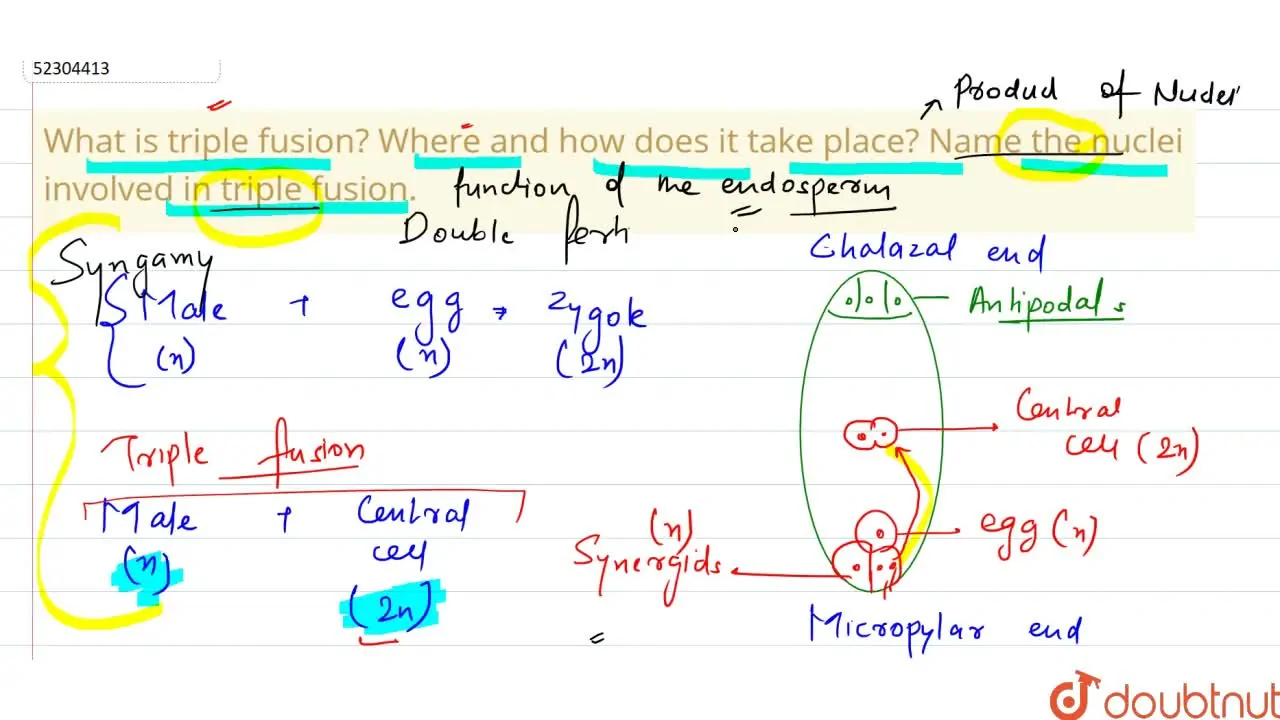 52304413
Product of Nuclei
What is triple fusion? Where and how does it take place? Name the nuclei
involved in triple fusion.
function of the endosperm
Double ferti
Syngamy
Chalazal end
Male + egg → zygote
(n) (n) (2n)
Antipodals
Central
cell (2n)
Triple fusion
Male + Central
cell
(n) (2n)
(n)
Synergids
egg (n)
Micropylar end
=
doubtnut